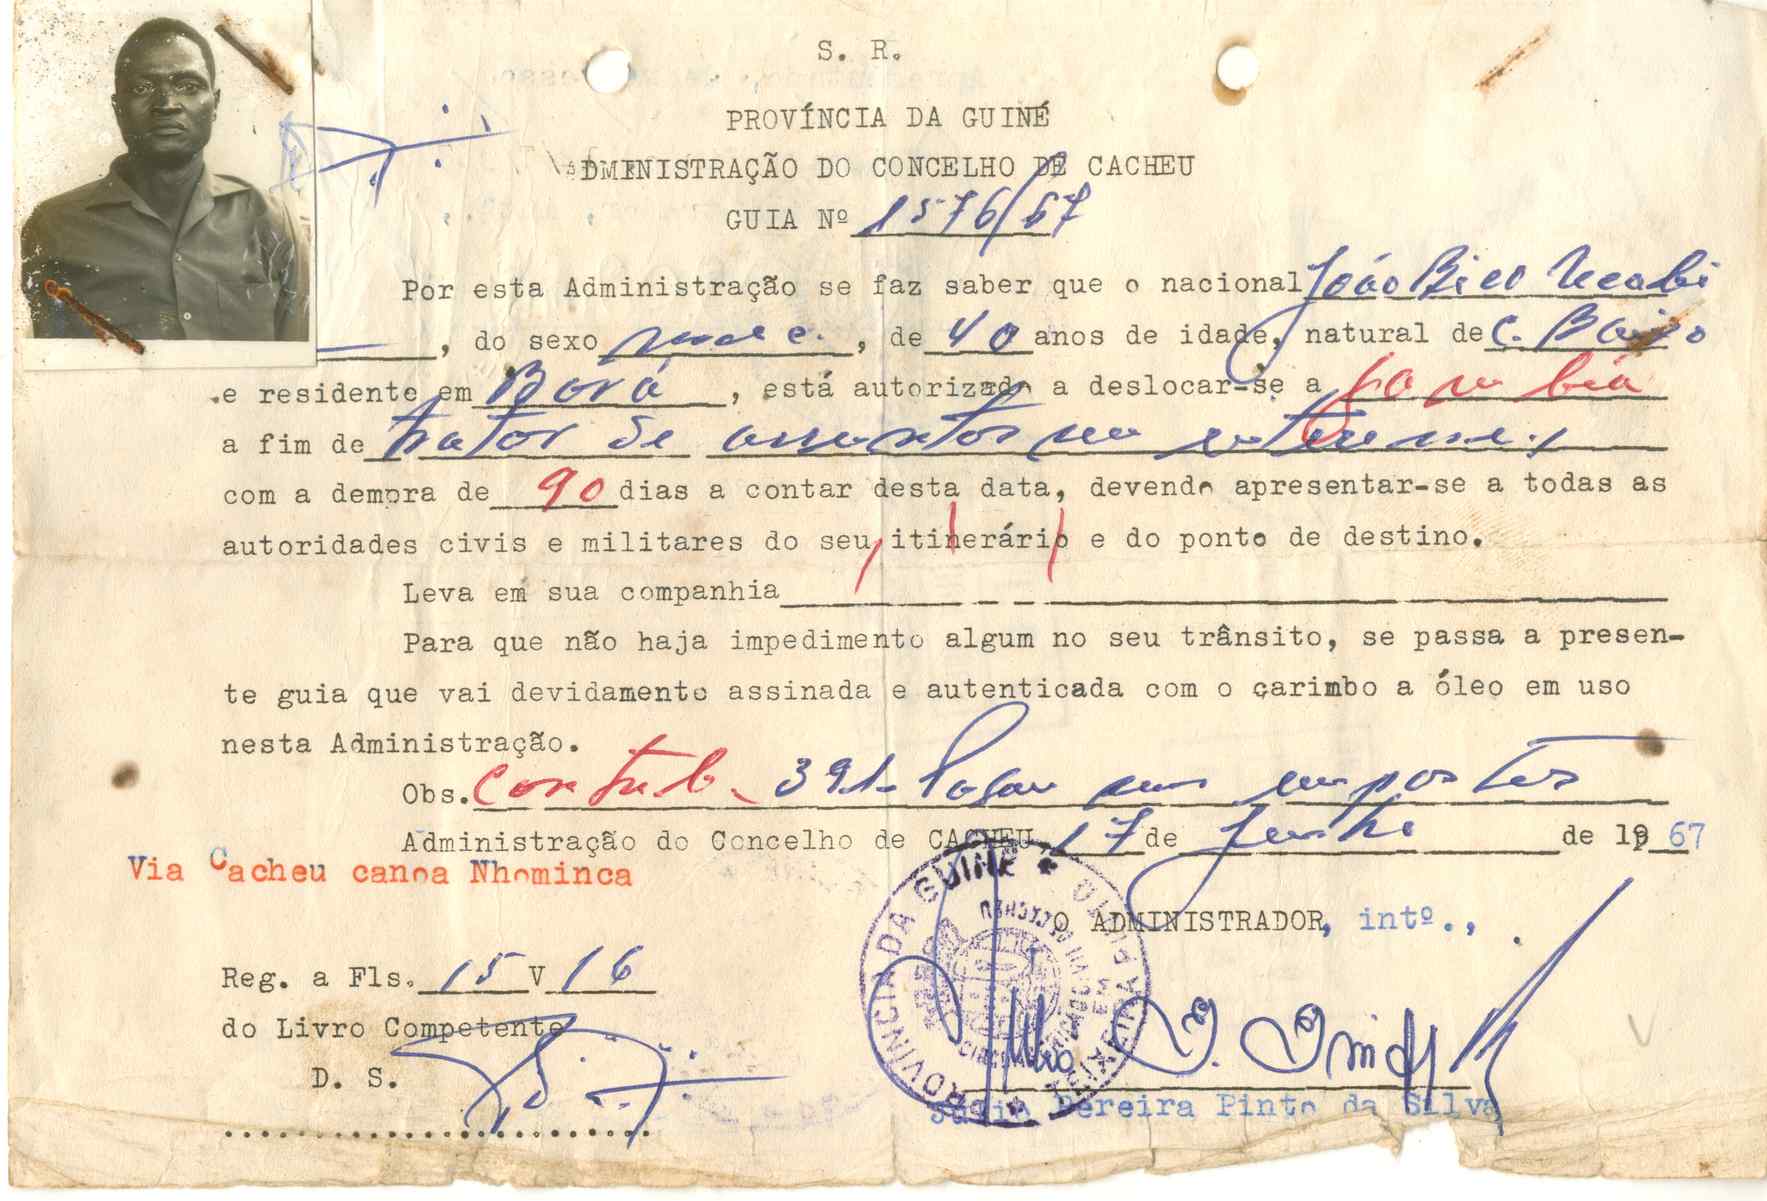 S. R.
PROVÍNCIA DA GUINÉ
ADMINISTRAÇÃO DO CONCELHO DE CACHEU
GUIA Nº 1576/67
Por esta Administração se faz saber que o nacional João Bico
, do sexo masc., de 40 anos de idade, natural de C. Baixo
e residente em Borá, está autorizado a deslocar-se a Gambia
a fim de tratar de assuntos
com a demora de 90 dias a contar desta data, devendo apresentar-se a todas as
autoridades civis e militares do seu itinerário e do ponto de destino.
Leva em sua companhia
Para que não haja impedimento algum no seu trânsito, se passa a presen-
te guia que vai devidamente assinada e autenticada com o carimbo a óleo em uso
nesta Administração.
Obs. Contrib. 391- Pagou impostos
Administração do Concelho de CACHEU, 17 de Junho de 1967
Via Cacheu canoa Nhominca
O ADMINISTRADOR, intº.,
PROVÍNCIA DA GUINÉ
Reg. a Fls. 15 V 16
do Livro Competente
D. S.
Júlio Pereira Pinto da Silva